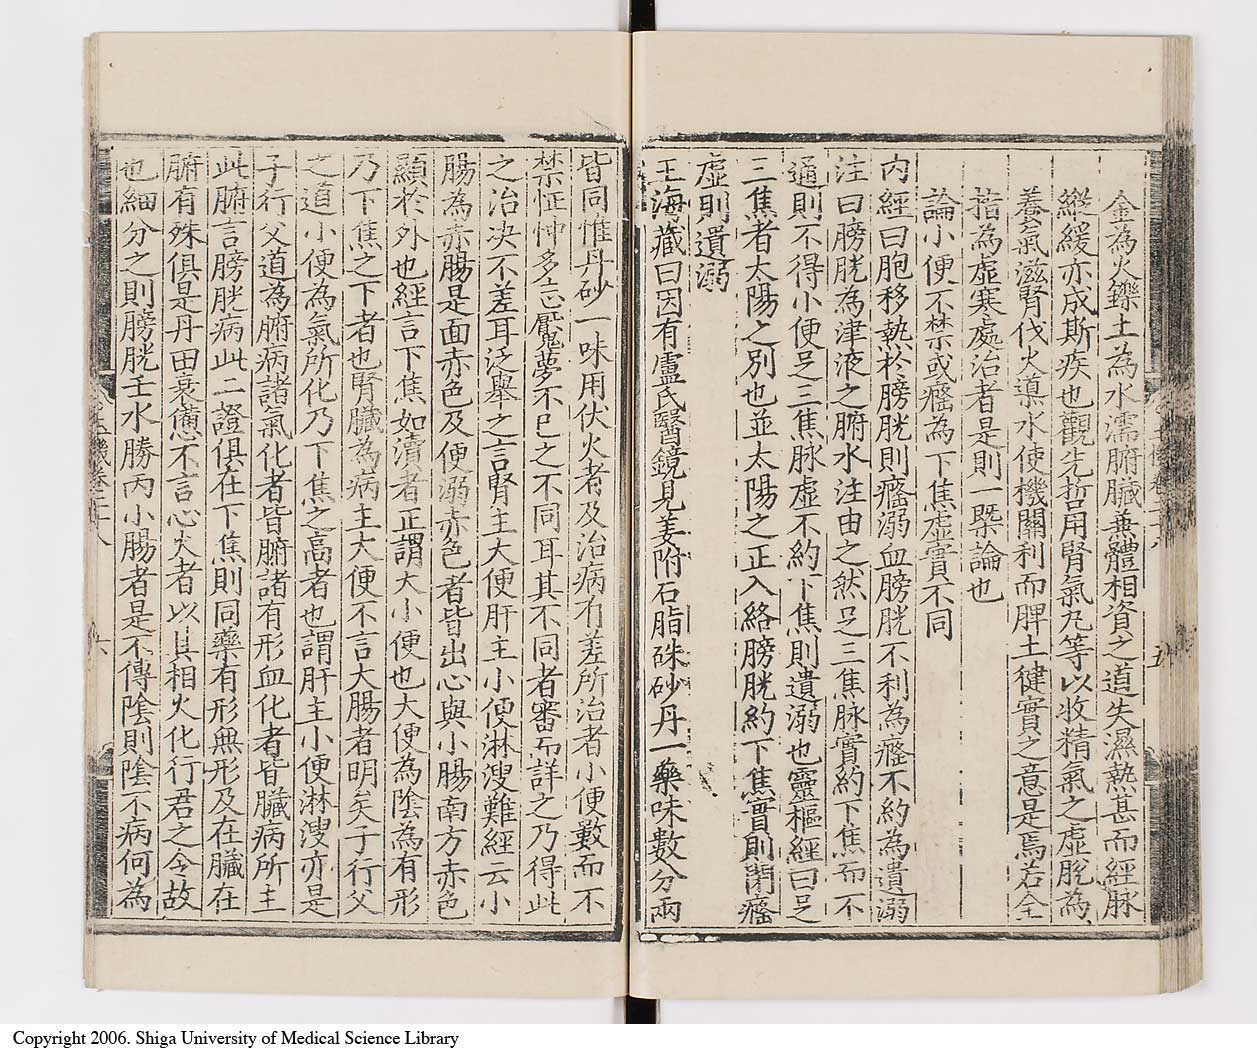 金為火鑠土為水濡腑臟兼體相資之道失濕熱甚而經脉
縱緩亦成斯疾也觀先哲用腎氣丸等以收精氣之虛脫為
養氣滋腎伐火導水使機關利而脾土健實之意是焉若全
指為虛寒處治者是則一槩論也
論小便不禁或癃為下焦虛實不同
內經曰胞移熱於膀胱則癃溺血膀胱不利為癃不約為遺溺
注曰膀胱為津液之腑水注由之然足三焦脉實約下焦而不
通則不得小便足三焦脉虛不約下焦則遺溺也靈樞經曰足
三焦者太陽之別也並太陽之正入絡膀胱約下焦實則閉癃
虛則遺溺
王海藏曰因有盧氏醫鏡見姜附石脂硃砂丹一藥味數分兩
皆同惟丹砂一味用伏火者及治病有差所治者小便數而不
禁怔忡多忘魘夢不已之不同耳其不同者審而詳之乃得此
之治决不差耳泛舉之言腎主大便肝主小便淋溲難經云小
腸為赤腸是面赤色及便溺赤色者皆出心與小腸南方赤色
顯於外也經言下焦如瀆者正謂大小便也大便為陰為有形
乃下焦之下者也腎臟為病主大便不言大腸者明矣子行父
之道小便為氣所化乃下焦之高者也謂肝主小便淋溲亦是
子行父道為腑病諸氣化者皆腑諸有形血化者皆臟病所主
此腑言膀胱病此二證俱在下焦則同藥有形無形及在臟在
腑有殊俱是丹田衰憊不言心火者以其相火化行君之令故
也細分之則膀胱壬水勝丙小腸者是不傳陰則陰不病何為